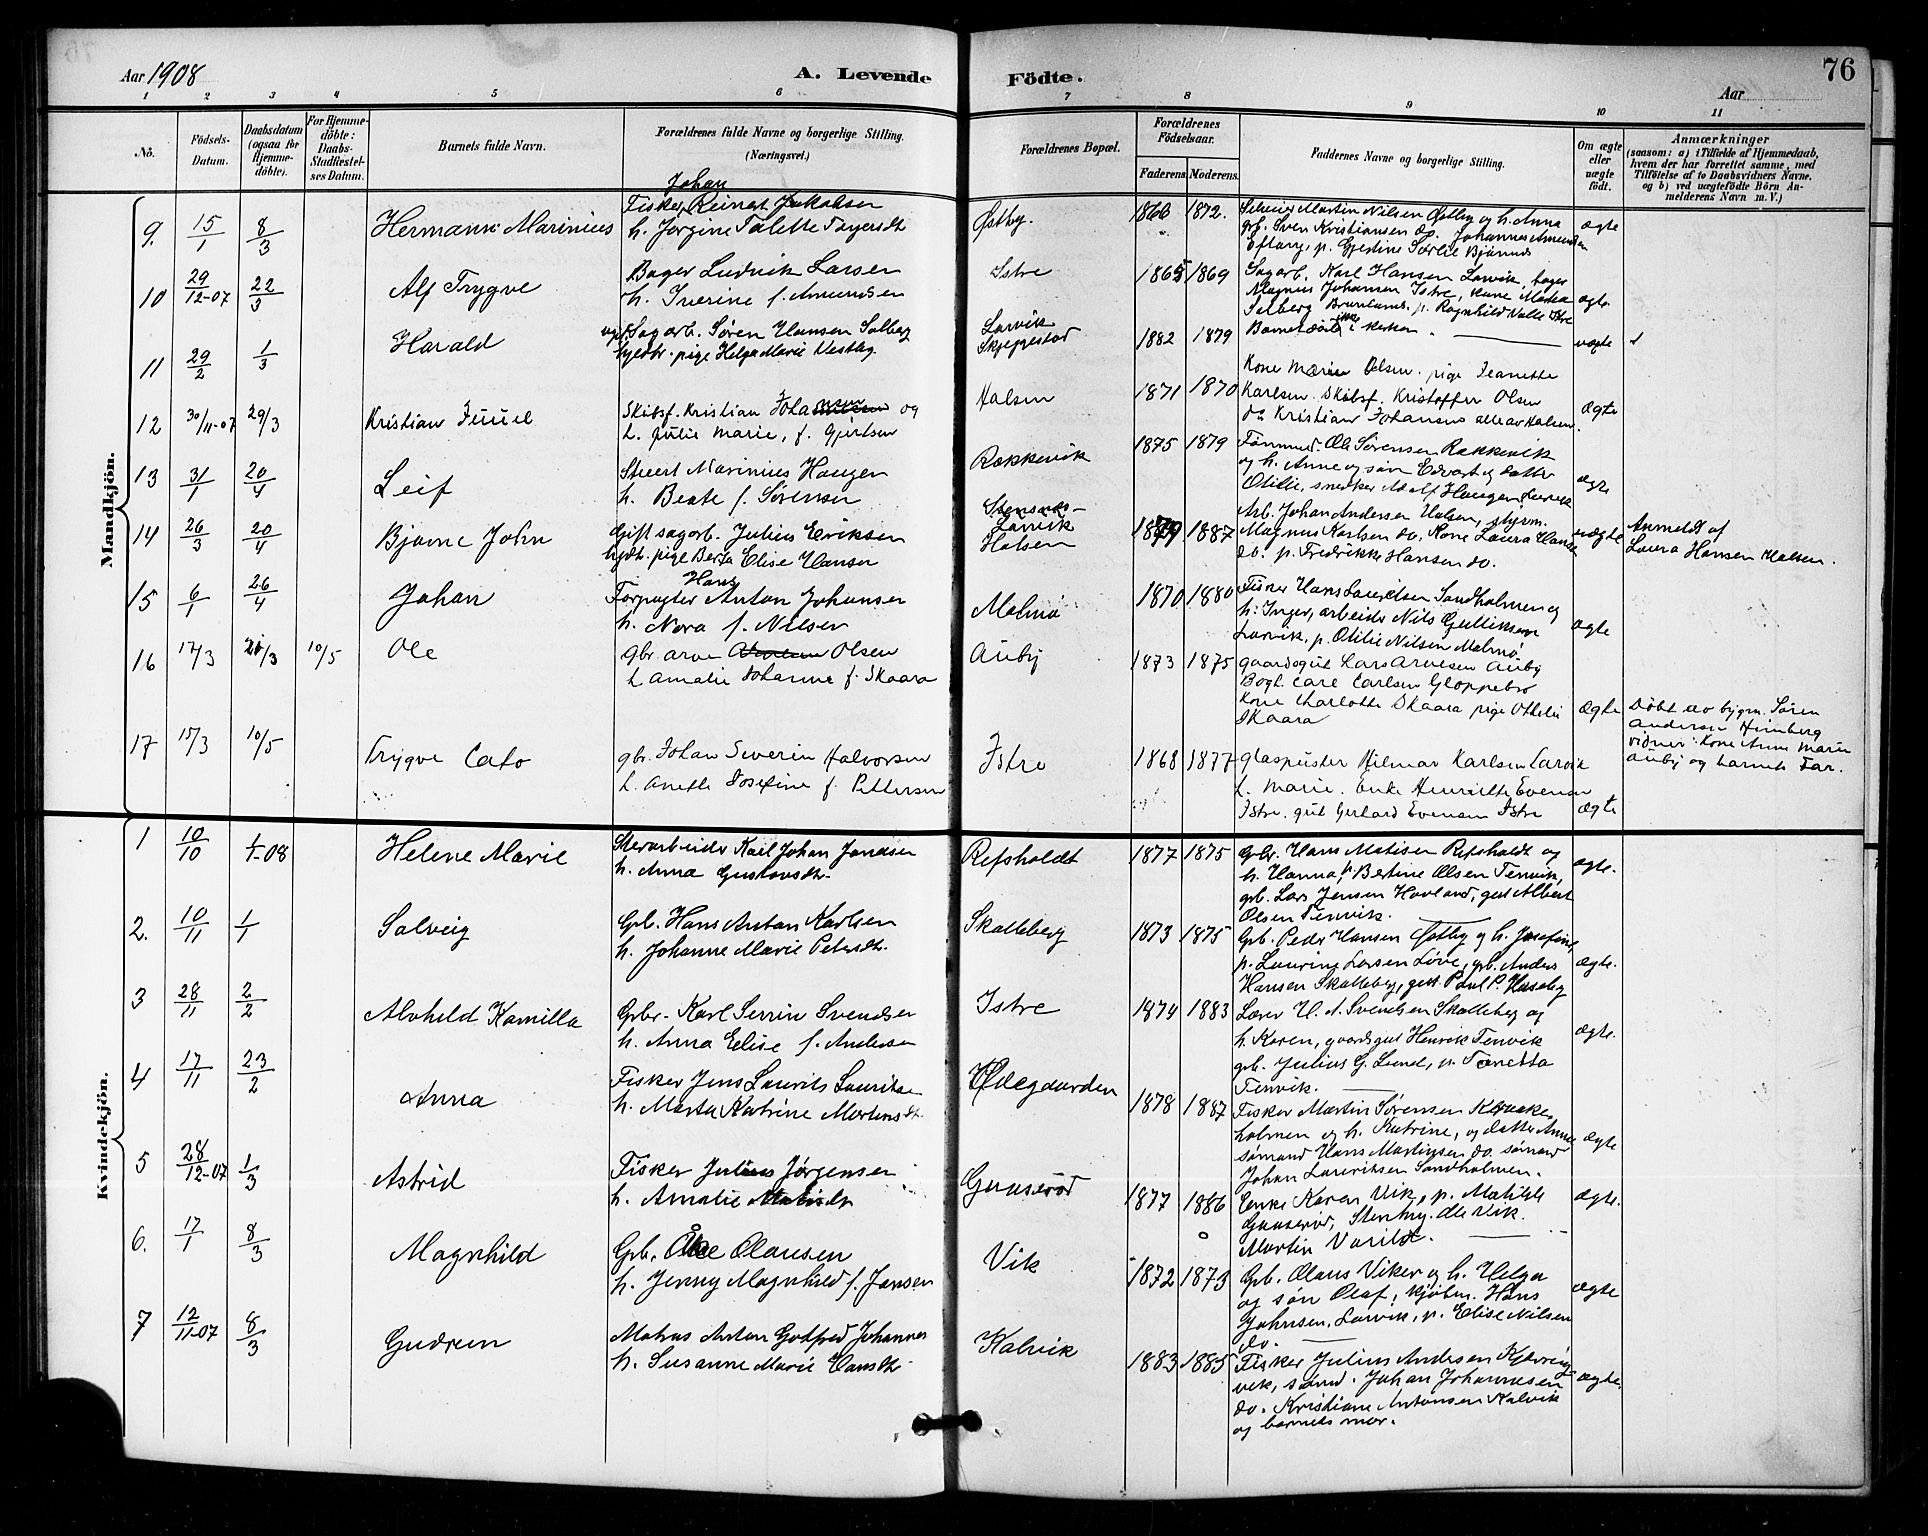 Aar 1908
A. Levende
Födte.
76
Aar
1 2 3 4 5 6 7 8 9 10 11
No.
Födsels-
Datum.
Daabsdatum
(ogsaa for
Hjemme-
döbte).
For Hjemme-
döbte:
Daabs-
Stadfæstel-
ses Datum.
Barnets fulde Navn.
Forældrenes fulde Navne og borgerlige Stilling.
(Næringsvei.)
Forældrenes Bopæl.
Forældrenes
Födselsaar.
Faderens
Moderens.
Faddernes Navne og borgerlige Stilling.
Om ægte
eller
uægte
födt.
Anmærkninger
(saasom: a) i Tilfælde af Hjemmedaab,
hvem der har forrettet samme, med
Tilföielse af to Daabsvidners Navne.
og b) ved uægtefödte Börn An-
melderens Navn m. V.)
Mandkjön.
9. 15/1 8/3 Hermann Marinius
Johan
Fisker Reinert Jakobsen
h. Jørgine Talette
Østby.
1866 1872.
Martin Nilsen Østby og h. Anna
gbr. Sven Kristiansen do. Johannes Amundsen
Eftang, p. Gjestine Sørlie Bjønnes
ægte
10 29/12-07 22/3 Alf Trygve
Bager Ludvik Larsen
h. Iverine f. Amundsen
Istre
1865 1869
Sagarb. Karl Hansen Larvik, bager
Magnus Johansen Istre, kone Marta
Solberg Brunlanes. p. Ragnhild Valle Istre
ægte
11 29/2 1/3 Harald
ugift Sagarb. Søren Hansen Solberg
pige Helga Marie Vestby.
Larvik
Skjeggestad
1882 1879
Barnet døbt ikke i kirken.
uægte
12 30/11-07 29/3 Kristian Juuel
Skibsf. Kristian og
h. Julie Marie, f. Gjertsen
Halsen
1871 1870
Kone Marie Olsen. pige Jeanette
Karlsen. Skibsf. Kristoffer Olsen
og Kristian Johansen alle av Halsen.
Ægte
13 31/1 20/4 Leif
Stuert Marinius Haugen
h. Beate f. Sørensen
Rækkevik
1875 1879
Tømmerm. Ole Sørensen Rækkevik
og h. Anne og søn Edvart og datter
Otilie, snedker Adolf Haugen Larvik
ægte
14 26/3 20/4 Bjarne John
Gift sagarb. Julius Eriksen
pige Berta Elise Hansen
Larvik
Halsen
1879 1887
Arb. Johan Andersen Halsen, styrm.
Magnus Karlsen do. Kone Laura Hansen
do. p. Fredrikke Hansen do.
uægte
Anmeldt af
Laura Hansen Halsen.
15 6/1 26/4 Johan
Hans
Forpagter Anton Johansen
h. Nora f. Nilsen
Malmø
1870 1880
Fisker Hans Lauritsen Sandholmen og
h. Inger, arbeider Nils Gulliksen
Larvik, p. Otilie Nilsen Malmø
ægte
16 17/3 21/3 10/5 Ole
gbr. Arve Olsen
h. Amalie Johanne f. Skaara
Auby
1873 1875
gaardsgut Lars Arvesen Auby
Bogh. Carl Carlsen Gloppebro
Kone Charlotte Skaara pige Othelie
Skaara
Ægte
Døbt av bygm. Søren
Andersen Himberg
vidner: Kone Anne Marie
Auby og barnets Far.
17 15/3 10/5 Trygve Cato
gbr. Johan Severin Halvorsen
h. Anette Josefine f. Pettersen
Istre
1868 1877
Glaspuster Hilmar Karlsen Larvik
h. Marie. Enke Henriette Evensen
Istre. gut Gerhard Evensen Istre
ægte
Kvindekjön.
1 10/10 1/1-08 Helene Marie
Karl Johan Jansen
h. Anna Gustavsdtr.
Refsholdt
1877 1875
Gbr. Hans Matisen Refsholdt og
h. Hanna, p. Bertine Olsen Tenvik,
gbr. Lars Jensen Hovland, gut Albert
Olsen Tenvik.
ægte.
2. 10/11 1/1 Solveig
Gbr. Hans Anton Karlsen
h. Johanne Marie Petersdtr.
Skalleberg
1873 1875
Gbr. Peder Hansen Østby og h. Josefine,
p. Laurine Larsen Løve, gbr. Anders
Hansen Skalleberg, gut Paul P. Huseby
ægte.
3 28/11 2/2 Alvhild Kamilla
Gbr. Karl Serin Svendsen
h. Anna Elise f. Andersen
Istre
1874 1883
Lærer H. A. Svendsen Skalleberg og
h. Karen, gaardsgut Henrik Tenvik
gbr. Julius G. Lund, p. Tanetta
Tenvik.
ægte.
4 17/11 23/2 Anna
Fisker Jens Laurits Lauritsen
h. Marta Katrine Mortensdtr.
Ødegaarden
1878 1887
Fisker Martin Sørensen Krake-
holmen og h. Katrine, og datter Anna
sømand Hans Martinsen do. sømand
Johan Lauritsen Sandholmen.
ægte
5 28/12-07 1/3 Astrid
Fisker Julius Jørgensen
h. Amalie
Guuserød
1877 1886
Enke Karen Vik, p. Matilde
Guuserød, Stenhug. Ole Vik.
Martin Varild.
ægte.
6. 17/1 8/3 Magnhild
Gbr. Åke Olausen
h. Jenny Magnhild f. Jansen
Vik
1872 1873
Gbr. Olaus Viker og h. Helga
og søn Olaf, kjøbm. Hans
Johnsen, Larvik, p. Elise Nilsen
do.
ægte
7 12/11-07 8/3 Gudrun
Matros Anton Gotfred Johannes
h. Susanne Marie Hansdtr.
Kalvik
1883 1885
Fisker Julius Andersen Kjerring-
vik, sømd. Johan Johannesen
do. Kristiane Antonsen Kalvik
og barnets mor.
ægte.